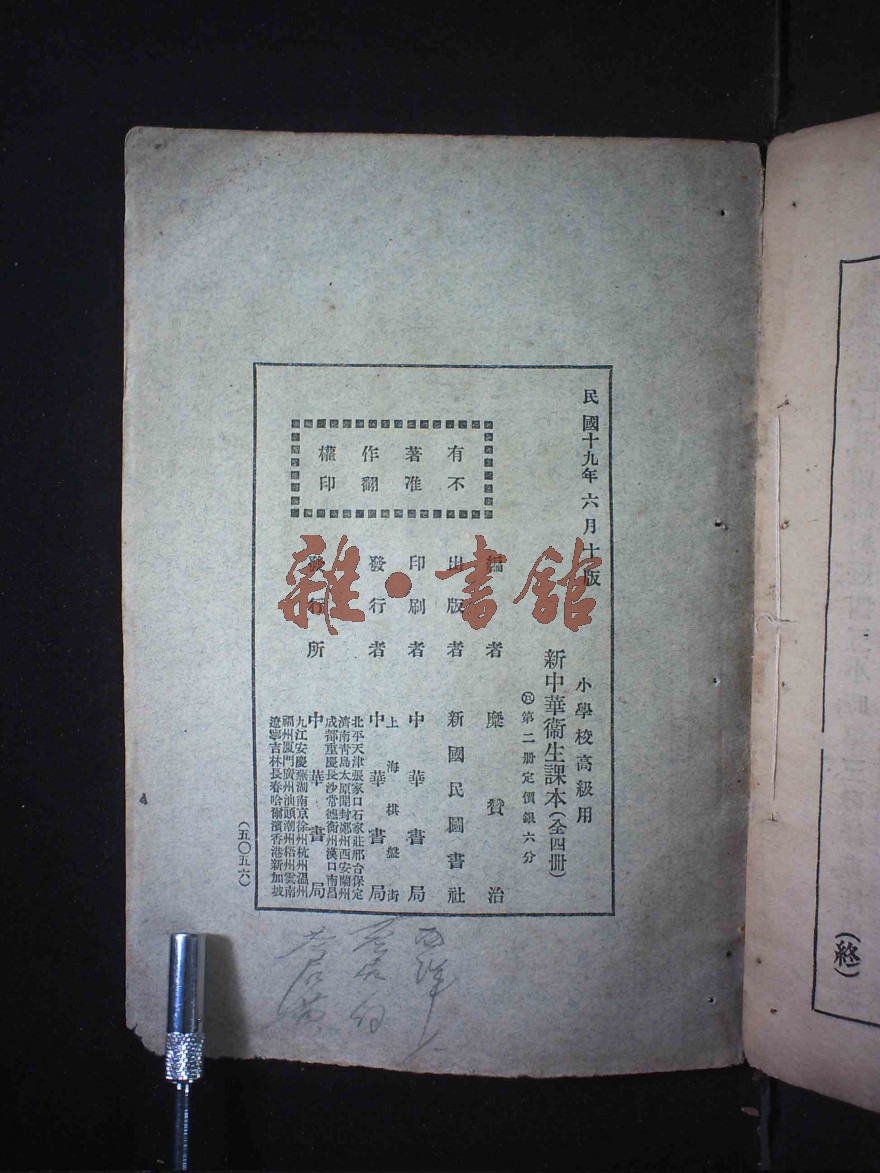 民國十九年六月十版
小學校高級用
新中華衞生課本(全四册)
第二册定價銀六分
有著作權
不准翻印
編者 糜贊治
出版者 新國民圖書社
印刷者 中華書局
上海棋盤街
發行者 中華書局
發行所 中華書局
北平天津張家口石家莊邢台保定
濟南青島太原開封鄭州西安蘭州
成都重慶長沙常德衡州漢口南昌
九江安慶蕪湖南京徐州杭州溫州
福州厦門廣州汕頭潮州梧州雲南
遼寧吉林長春哈爾濱香港新加坡
(五〇五六)
雜·書館
(終)